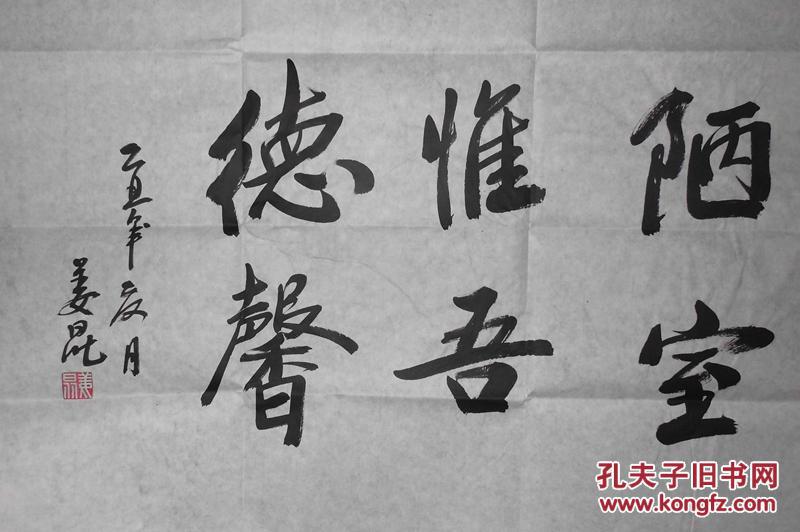 陋室
惟吾
德馨
乙丑年夏月
姜昆
姜昆
孔夫子旧书网
www.kongfz.com